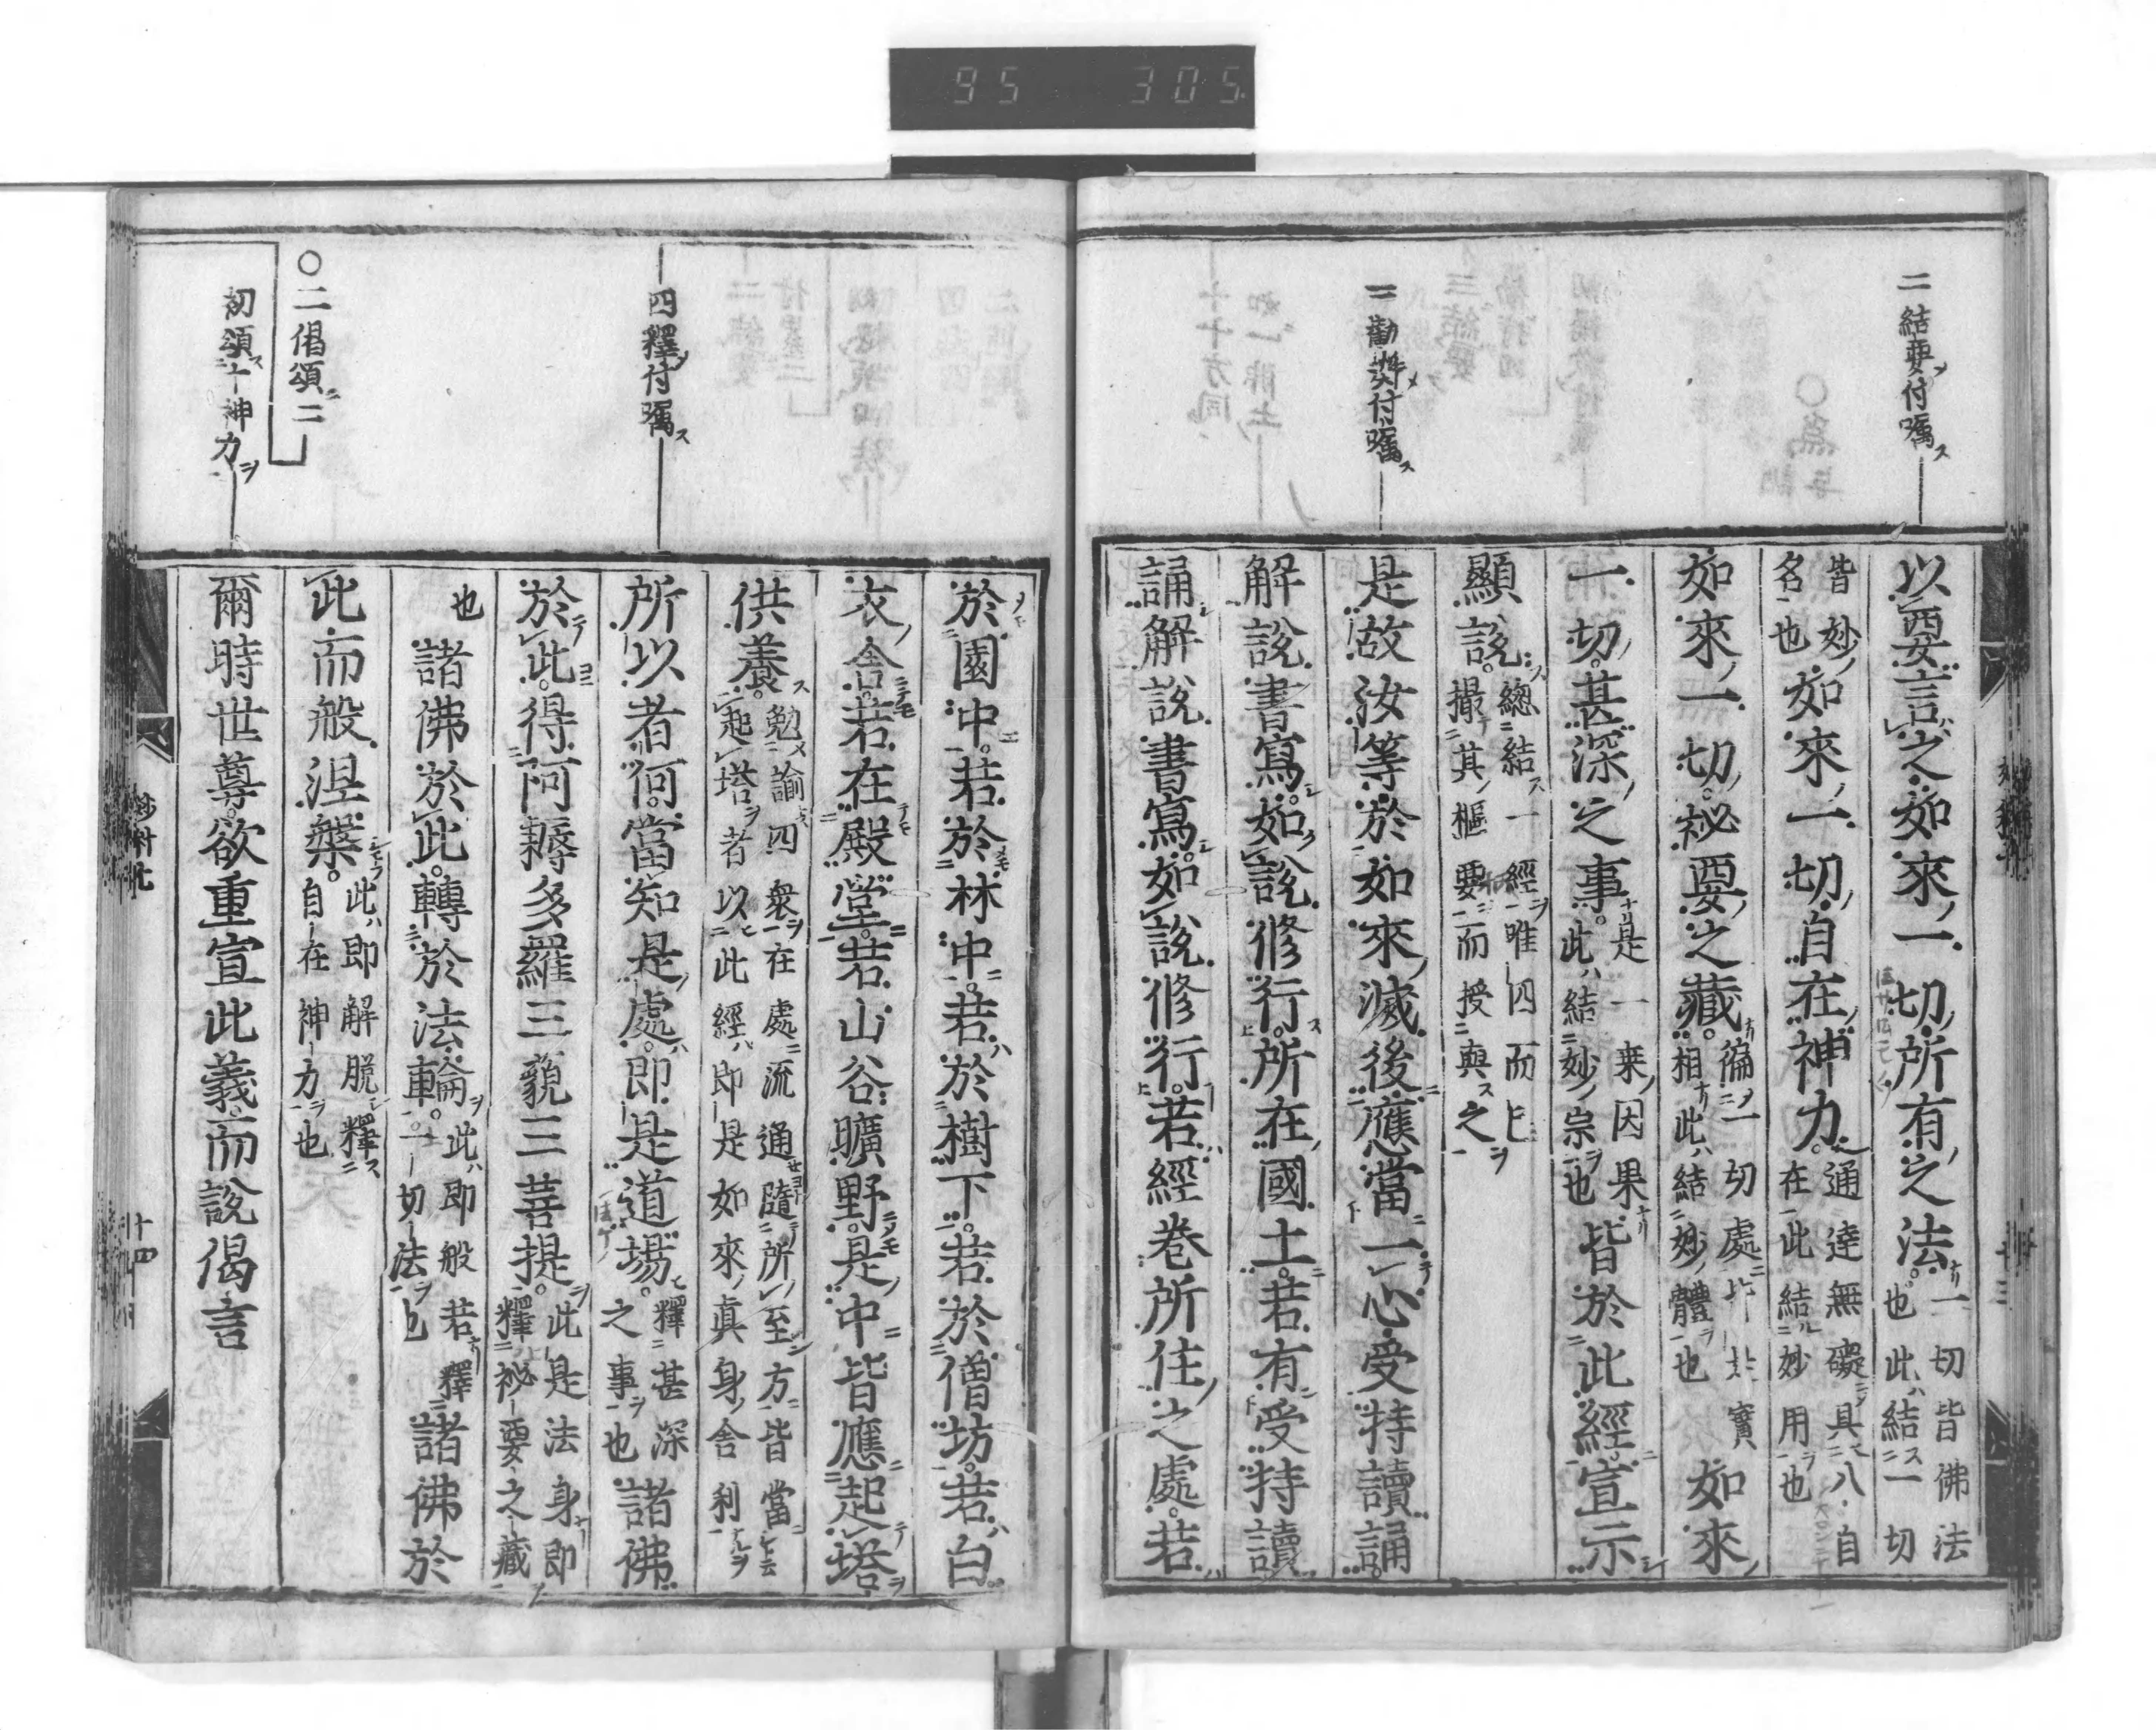 95 305
二結要付囑
三勸奬付囑
以要言之如來一切所有之法一切皆佛法也此結一切
皆妙名也如來一切自在神力通達無礙具八自在此結妙用也
如來一切祕要之藏徧一切處 實相此結妙體也如來
一切甚深之事是一乗因果此結妙宗也皆於此經宣示
顯說總結一經唯四而已撮其樞要而授與之
是故汝等於如來滅後應當一心受持讀誦
解說書寫如說修行所在國土若有受持讀
誦解說書寫如說修行若經卷所住之處若
四釋付囑
○二偈頌二
初頌十神力
於園中若於林中若於樹下若於僧坊若白
衣舍若在殿堂若山谷曠野是中皆應起塔
供養勉諭四衆在處流通隨所至方皆當起塔者以此經即是如來眞身舍利
所以者何當知是處即是道場釋甚深之事也諸佛
於此得阿耨多羅三藐三菩提此是法身即釋祕要之藏
也諸佛於此轉於法輪此即般若釋一切法也諸佛於
此而般涅槃此即解脫釋自在神力也
爾時世尊欲重宣此義而說偈言
十四